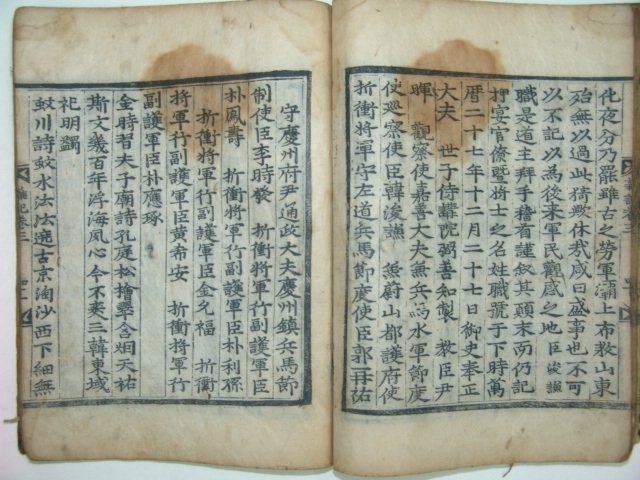 化夜分乃罷雖古之勞軍灞上布敎山東
殆無以過此猗歟休哉咸曰盛事也不可
以不記以爲後來軍民觀感之地臣浚謙
職是道主拜手稽首謹叙其顚末而仍記
押宴官僚曁將士之名姓職號于下時萬
曆二十七年十二月二十七日御史奉正
大夫 世子侍講院弼善知製 敎臣尹
暉 觀察使嘉善大夫兼兵馬水軍節度
使巡察使臣韓浚謙 兼蔚山都護府使
折衝將軍守左道兵馬節度使臣郭再祐
守慶州府尹通政大夫慶州鎭兵馬節
制使臣李時發 折衝將軍行副護軍臣
朴鳳壽 折衝將軍行副護軍臣朴利孫
折衝將軍行副護軍臣金允福 折衝
將軍行副護軍臣黃希安 折衝將軍行
副護軍臣朴應琢
金時習夫子廟詩孔庭松檜翠含烟天祐
斯文幾百年浮海夙心今不爽三韓東域
祀明蠲
蚊川詩蚊水法法遶古京淘沙西下細無
雜記卷三